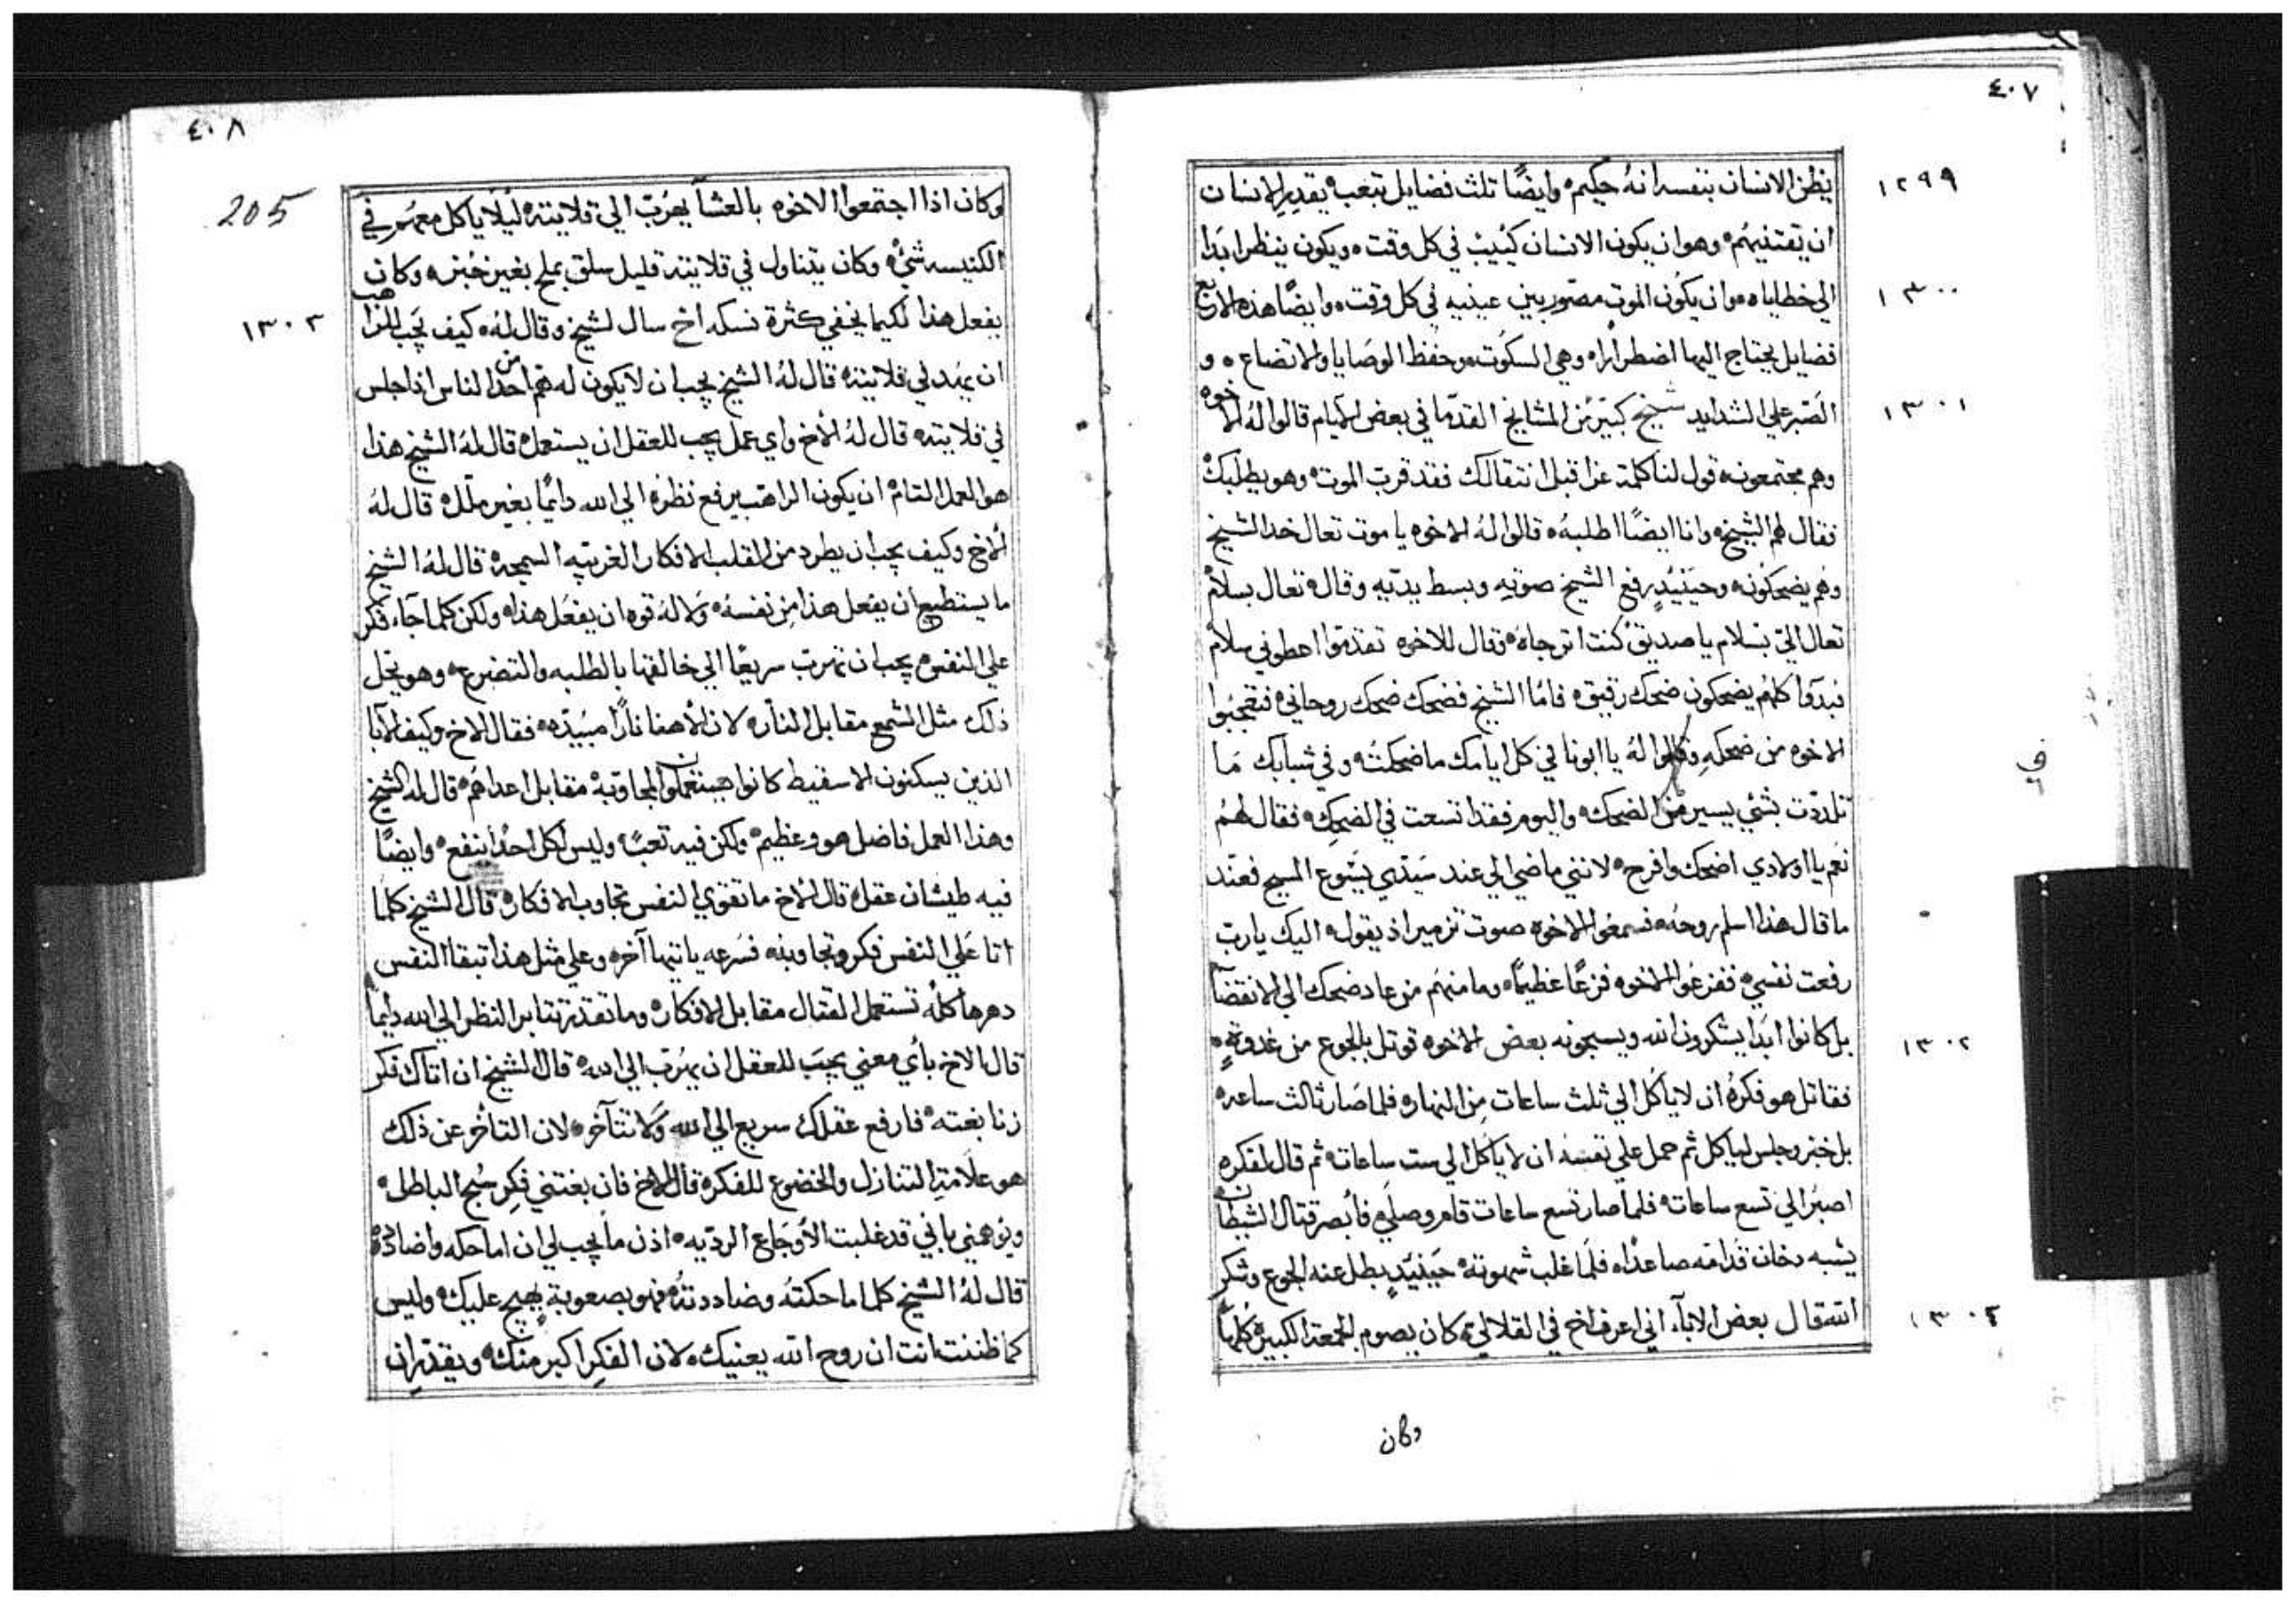 ٤٠٧
١٢٩٩
يظن الانسان بنفسه انهُ حكيم وايضًا تلث فضايل بتعب يقدر الانسان
ان يقتنيهم وهو ان يكون الانسان كئيب في كل وقت ويكون ينظر ابدا
١٣٠٠
الي خطاياه وان يكون الموت مصور بين عينيه في كل وقت وايضًا هذه الاربع
فضايل يحتاج اليها اضطرارا وهي السكوت وحفظ الوصايا والاتضاع و
١٣٠١
الصبر علي الشدايد شيخ كبير من المشايخ القدما في بعض الايام قالوا لهُ الاخوه
وهم مجتمعون قول لنا كلمة عزا قبل انتقالك فقد قرب الموت وهو يطلبك
فقال لهم الشيخ وانا ايضًا اطلبهُ قالوا لهُ الاخوه يا موت تعال خد الشيخ
وهُم يضحكون وحينيدٍ رفع الشيخ صوته وبسط يديه وقال تعال بسلام
تعال اليّ بسلام يا صديق كنت اترجاهُ وقال للاخوه تقدموا اعطوني سلام
فبدوا كلهُم يضحكون ضحك رقيق فامّا الشيخ فضحك ضحك روحاني فتعجبوا
الاخوه من ضحكهِ وقالوا لهُ يا ابونا في كل ايامك ما ضحكت وفي شبابك مَا
تلددت بشي يسير من الضحك واليوم فقد اتسعت في الضحك فقال لهُم
نعم يا اولادي اضحك وافرح لانني ماضي الي عند سَيّدي يَسُوع المسيح فعند
ما قال هذا اسلم روحهُ فسمعوا الاخوه صوت تزمير اذ يقول اليك يارب
رفعت نفسي ففزعوا الاخوه فزعًا عظيمًا وما منهم من عاد ضحك الي الانقضآ
١٣٠٢
بل كانوا ابدا يشكرون الله ويسبحونه بعض الاخوه قوتل بالجوع من غدوةٍ
فقاتل هو فكرهُ ان لا ياكل الي ثلث ساعات من النهار فلما صَار ثالث ساعه
بل خبز وجلس لياكل ثم حمل علي نفسه ان لا ياكل الي ست ساعات ثم قال لفكره
اصبر الي تسع ساعات فلما صار تسع ساعات قام وصلي فأبصر قتال الشيطان
يشبه دخان قدامه صاعدًا فلما غلب شهوته حينيدٍ بطل عنه الجوع وشكر
١٣٠٤
الله قال بعض الابآء اني اعرف اخ في القلالي كان يصوم الجمعة الكبيرة كلها
وكان
٤٠٨
205
وكان اذا اجتمعوا الاخوه بالعشآ يهرُب الي قلايته ليلا ياكل معهم في
الكنيسه شي وكان يتناول في قلايته قليل سلق بملح بغير خبز وكان
١٣٠٣
يفعل هذا لكيما يخفي كثرة نسكه اخ سال لشيخ وقال لهُ كيف يَجب للراهب
ان يهد لي قلايته قال لهُ الشيخ يجب ان لا يكون له هم احد من الناس اذا جلس
في قلايته قال لهُ الأخ واي عمل يجب للعقل ان يستعمل قال لهُ الشيخ هذا
هو العمل التام ان يكون الراهب يرفع نظره الي الله دايمًا بغير ملل قال لهُ
الأخ وكيف يجب ان يطرد من القلب الافكار الغريبه السمجه قال لهُ الشيخ
ما يستطيع ان يفعل هذا من نفسهُ وَلا لهُ قوه ان يفعل هذا ولكن كلما جآء فكر
علي النفس يجب ان تهرب سريعًا الي خالقها بالطلبه والتضرع وهو يحل
ذلك مثل الشمع مقابل النار لان الأهنا نارًا مبيده فقال الاخ وكيف الابآ
الذين يسكنون الاسقيط كانوا يستعملون المجاوبة مقابل اعداهم قال لهُ الشيخ
وهذا العمل فاضل هو وعظيم ولكن فيه تعبٌ وليس لكل احدًا ينفع وايضًا
فيه طيشان عقل قال الاخ ما تقوي النفس تجاوب الافكار قال الشيخ كلما
اتا علي النفس فكر وتجاوبنه فسَرعه ياتيها آخر وعلي مثل هذا تبقا النفس
دهرها كلُه تستعمل القتال مقابل الافكار وما تقدر تتابر النظر الي الله دايمًا
قال الاخ بأي معني يجب للعقل ان يهرُب الي الله قال الشيخ ان اتاك فكر
زنا بغته فارفع عقلك سريع الي الله وَلا تتآخر لان التأخر عن ذلك
هو علامة التنازل والخضوع للفكره قال الاخ فان بغتني فكر سُبح الباطل
ويُوهمني باني قد غلبت الأوجَاع الرديه اذن ما يجب لي ان اماحكه واضادده
قال لهُ الشيخ كلما ماحكته وضاددته فهو بصعوبةٍ يهيج عليك وليس
كما ظننت انت ان روح الله يعنيك لان الفكر اكبر منك ويقدر ان